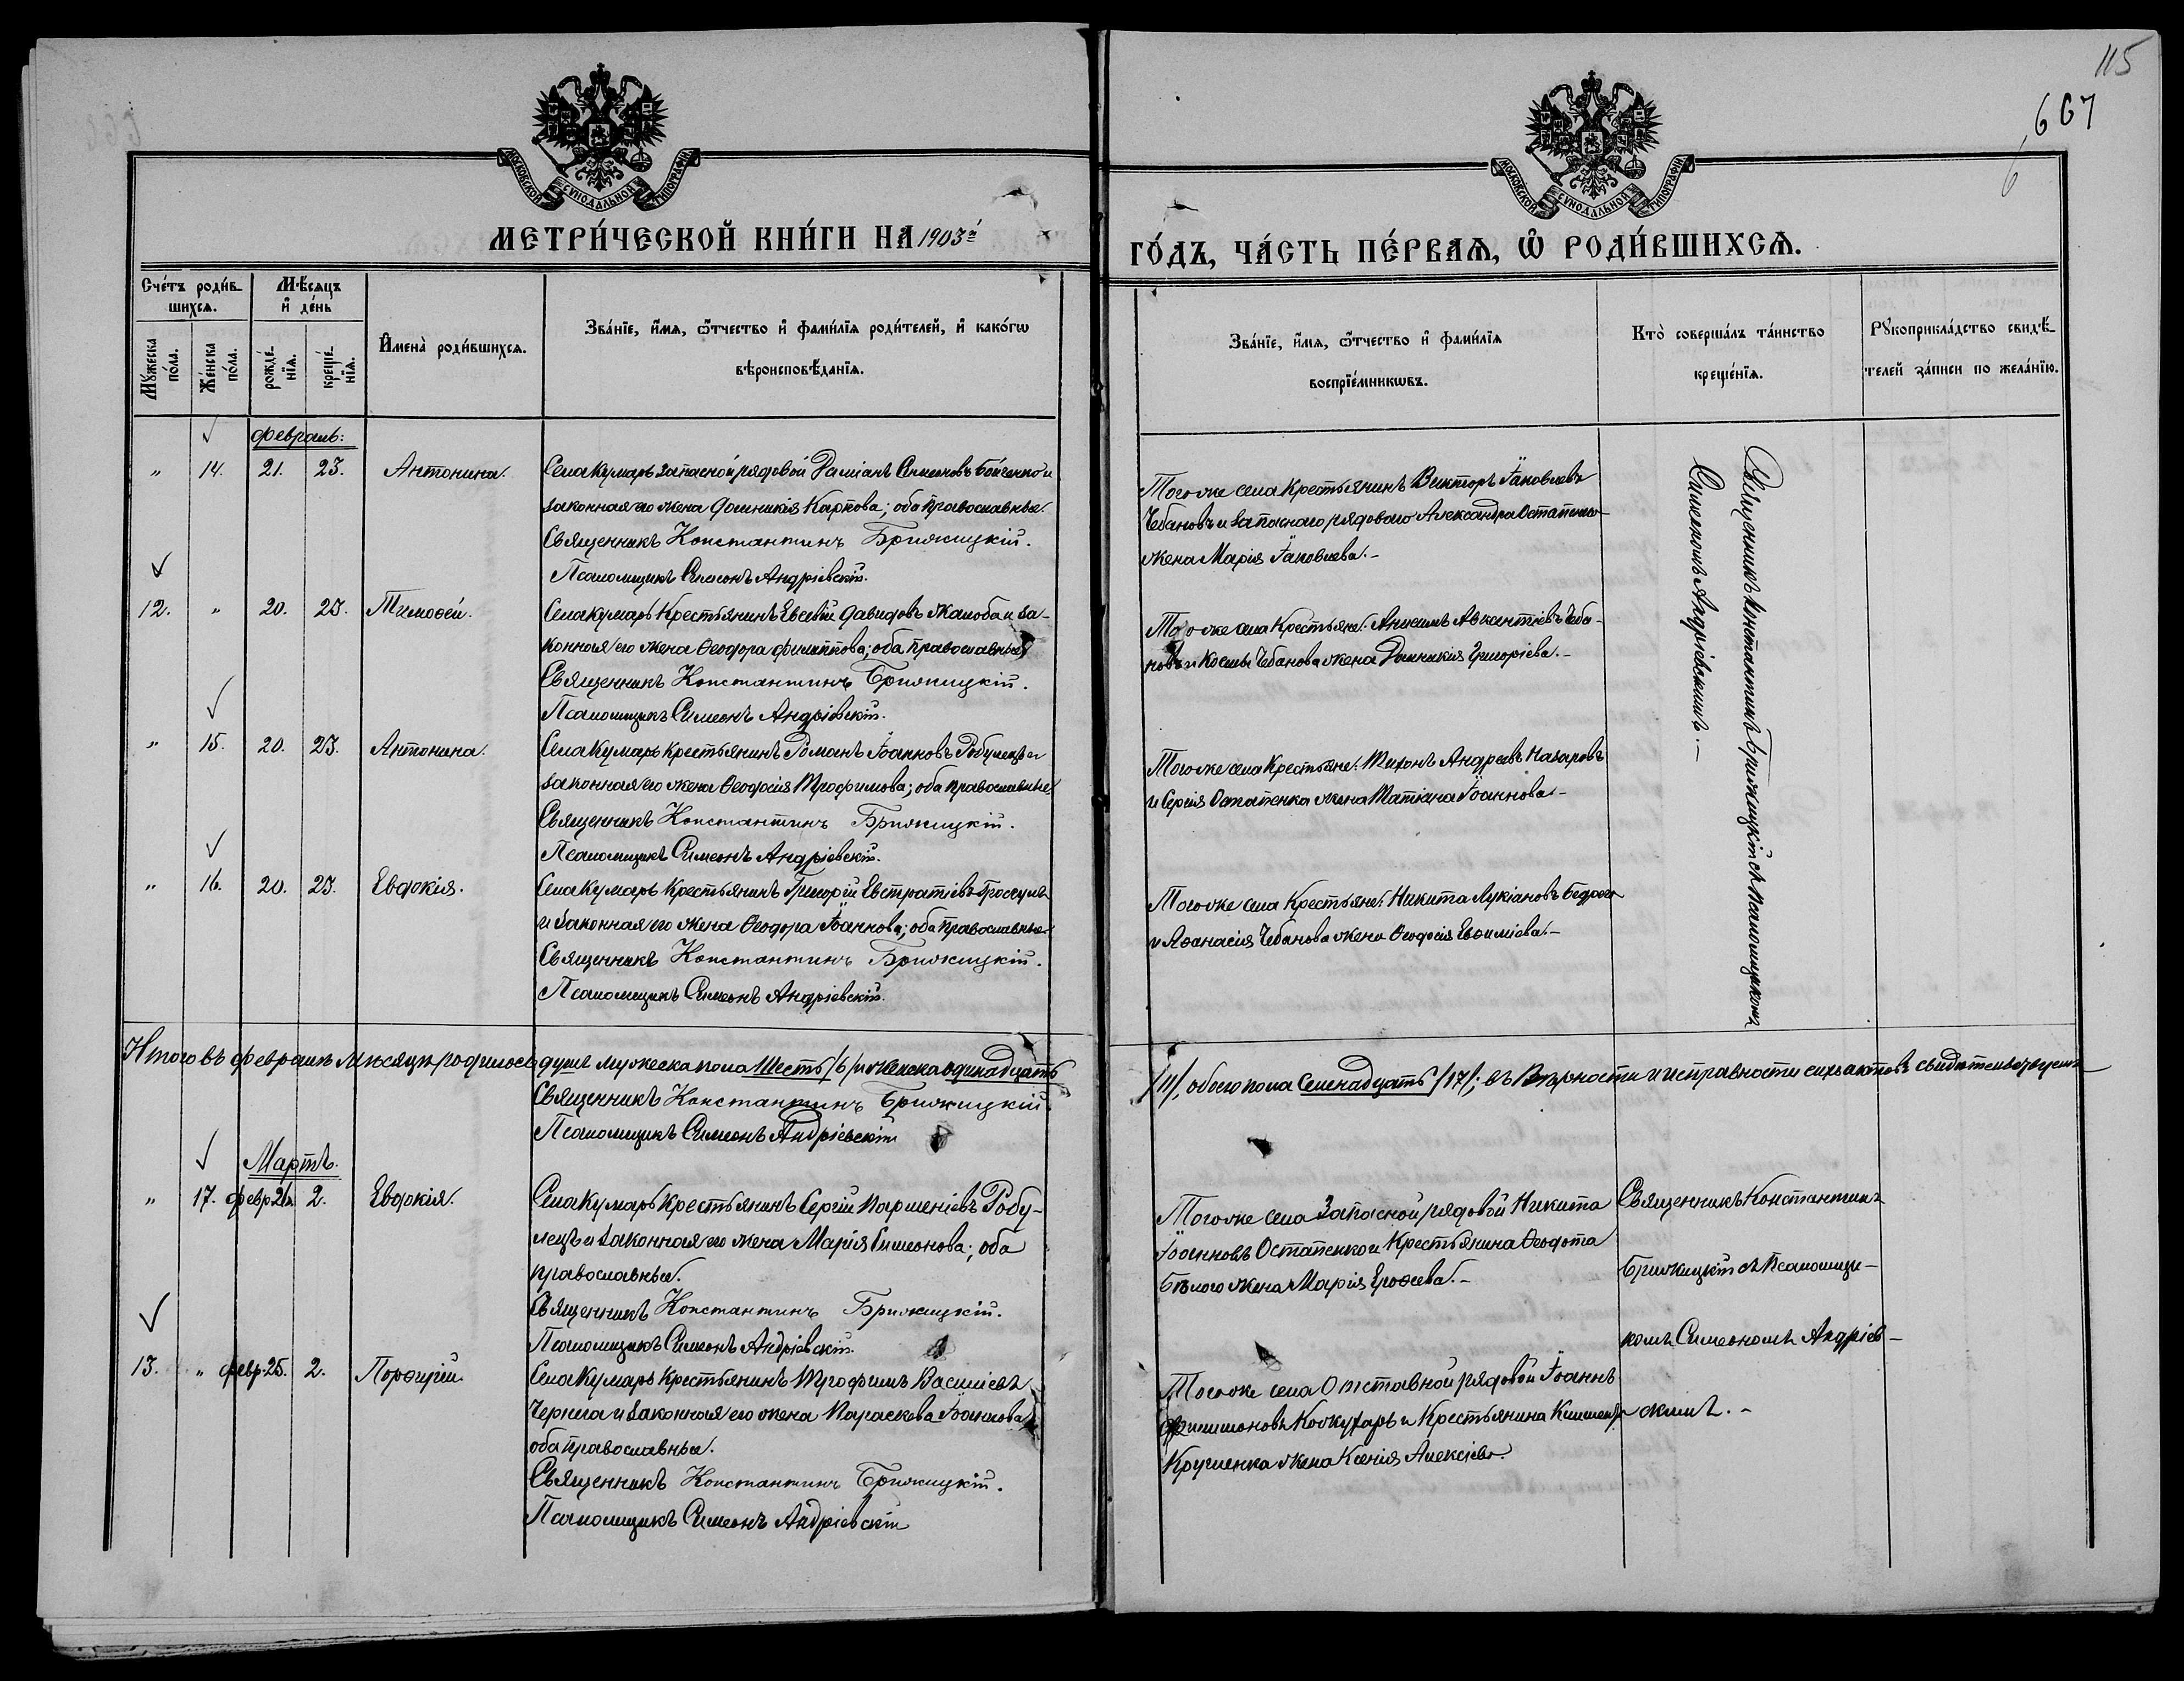 115
667
6
МОСКОВСКОЙ СѴНОДАЛЬНОЙ ТИПОГРАФІИ
МОСКОВСКОЙ СѴНОДАЛЬНОЙ ТИПОГРАФІИ
МЕТРИ́ЧЕСКОЙ КНИ́ГИ НА 1903й
ГО́ДЪ, ЧА́СТЬ ПЕ́РВАѦ, Ѡ҆ РОДИ́ВШИХСѦ.
Сче́тъ роди́вшихсѧ.
Мѣ́сѧцъ и҆ де́нь
И҆мена̀ роди́вшихсѧ.
Зва́нїе, и҆́мѧ, ѻ҆́тчество и҆ фами́лїѧ роди́телей, и҆ како́гѡ
вѣроисповѣ́данїѧ.
Мꙋ́жеска по́ла.
Же́нска по́ла.
рожде́нїѧ.
креще́нїѧ.
Зва́нїе, и҆́мѧ, ѻ҆́тчество и҆ фами́лїѧ
воспрїе́мникѡвъ.
Кто̀ соверша́лъ та́инство
креще́нїѧ.
Рꙋкоприкла́дство свидѣ́-
телей за́писи по жела́нїю.
Февраль:
" 14. 21. 23. Антонина. Села Кумарь запасной рядовой Даміанъ Симеоновъ Бойченко и
законная его жена Домникія Карпова; оба православные.
Священникъ Константинъ Брижицкій.
Псаломщикъ Симеонъ Андріевскій.
Того же села Крестьянинъ Викторъ Іаковлевъ
Чебановъ и запаснаго рядового Александра Остапенко
жена Марія Іаковлева.-
Священникъ Константинъ Брижицкій съ Псаломщикомъ
Симеономъ Андріевскимъ.-
12. " 20. 23. Тимоѳей. Села Кумарь Крестьянинъ Евсевій Давидовъ Жалоба и за-
конная его жена Ѳеодора Филиппова; оба православные
Священникъ Константинъ Брижицкій.
Псаломщикъ Симеонъ Андріевскій.
Того же села Крестьяне: Анисимъ Авксентіевъ Чеба-
новъ и Космы Чебанова жена Домникія Григоріева.-
" 15. 20. 23. Антонина. Села Кумарь Крестьянинъ Романъ Іоанновъ Робулецъ и
законная его жена Ѳеодосія Трофимова; оба православные
Священникъ Константинъ Брижицкій.
Псаломщикъ Симеонъ Андріевскій.
Того же села Крестьяне: Тихонъ Андреевъ Назаровъ
и Сергія Остапенка жена Татіана Іоаннова.-
" 16. 20. 23. Евдокія. Села Кумарь Крестьянинъ Григорій Евстратіевъ
и законная его жена Ѳеодора Іоаннова; оба православные
Священникъ Константинъ Брижицкій.
Псаломщикъ Симеонъ Андріевскій.
Того же села Крестьяне: Никита Лукіановъ
и Аѳанасія Чебанова жена Ѳеодосія Евѳиміева.-
Итого въ феврале месяце родилось душъ мужеска пола Шесть /6/ и женска одинадцать
/11/, обоего пола Семнадцать /17/; въ верности и исправности сихъ актовъ свидетельствуемъ
Священникъ Константинъ Брижицкій.
Псаломщикъ Симеонъ Андріевскій
Мартъ.
" 17. февр. 26. 2. Евдокія. Села Кумарь Крестьянинъ Сергій Парѳеніевъ Робу-
лецъ и законная его жена Марія Симеонова; оба
православные.
Священникъ Константинъ Брижицкій.
Псаломщикъ Симеонъ Андріевскій.
Того же села Запасной рядовой Никита
Іоанновъ Остапенко и Крестьянина Ѳеодота
Белого жена Марія Ероѳеева.-
Священникъ Константинъ
Брижицкій съ Псаломщи-
комъ Симеономъ Андріев-
скимъ.-
13. " февр. 25. 2. Порфирій. Села Кумарь Крестьянинъ Трофимъ Василіевъ
Чернега и законная его жена Параскева Іоаннова
оба православные.
Священникъ Константинъ Брижицкій.
Псаломщикъ Симеонъ Андріевскій
Того же села Отставной рядовой Іоаннъ
Филимоновъ и Крестьянина Климента
жена Ксенія Алексіева.